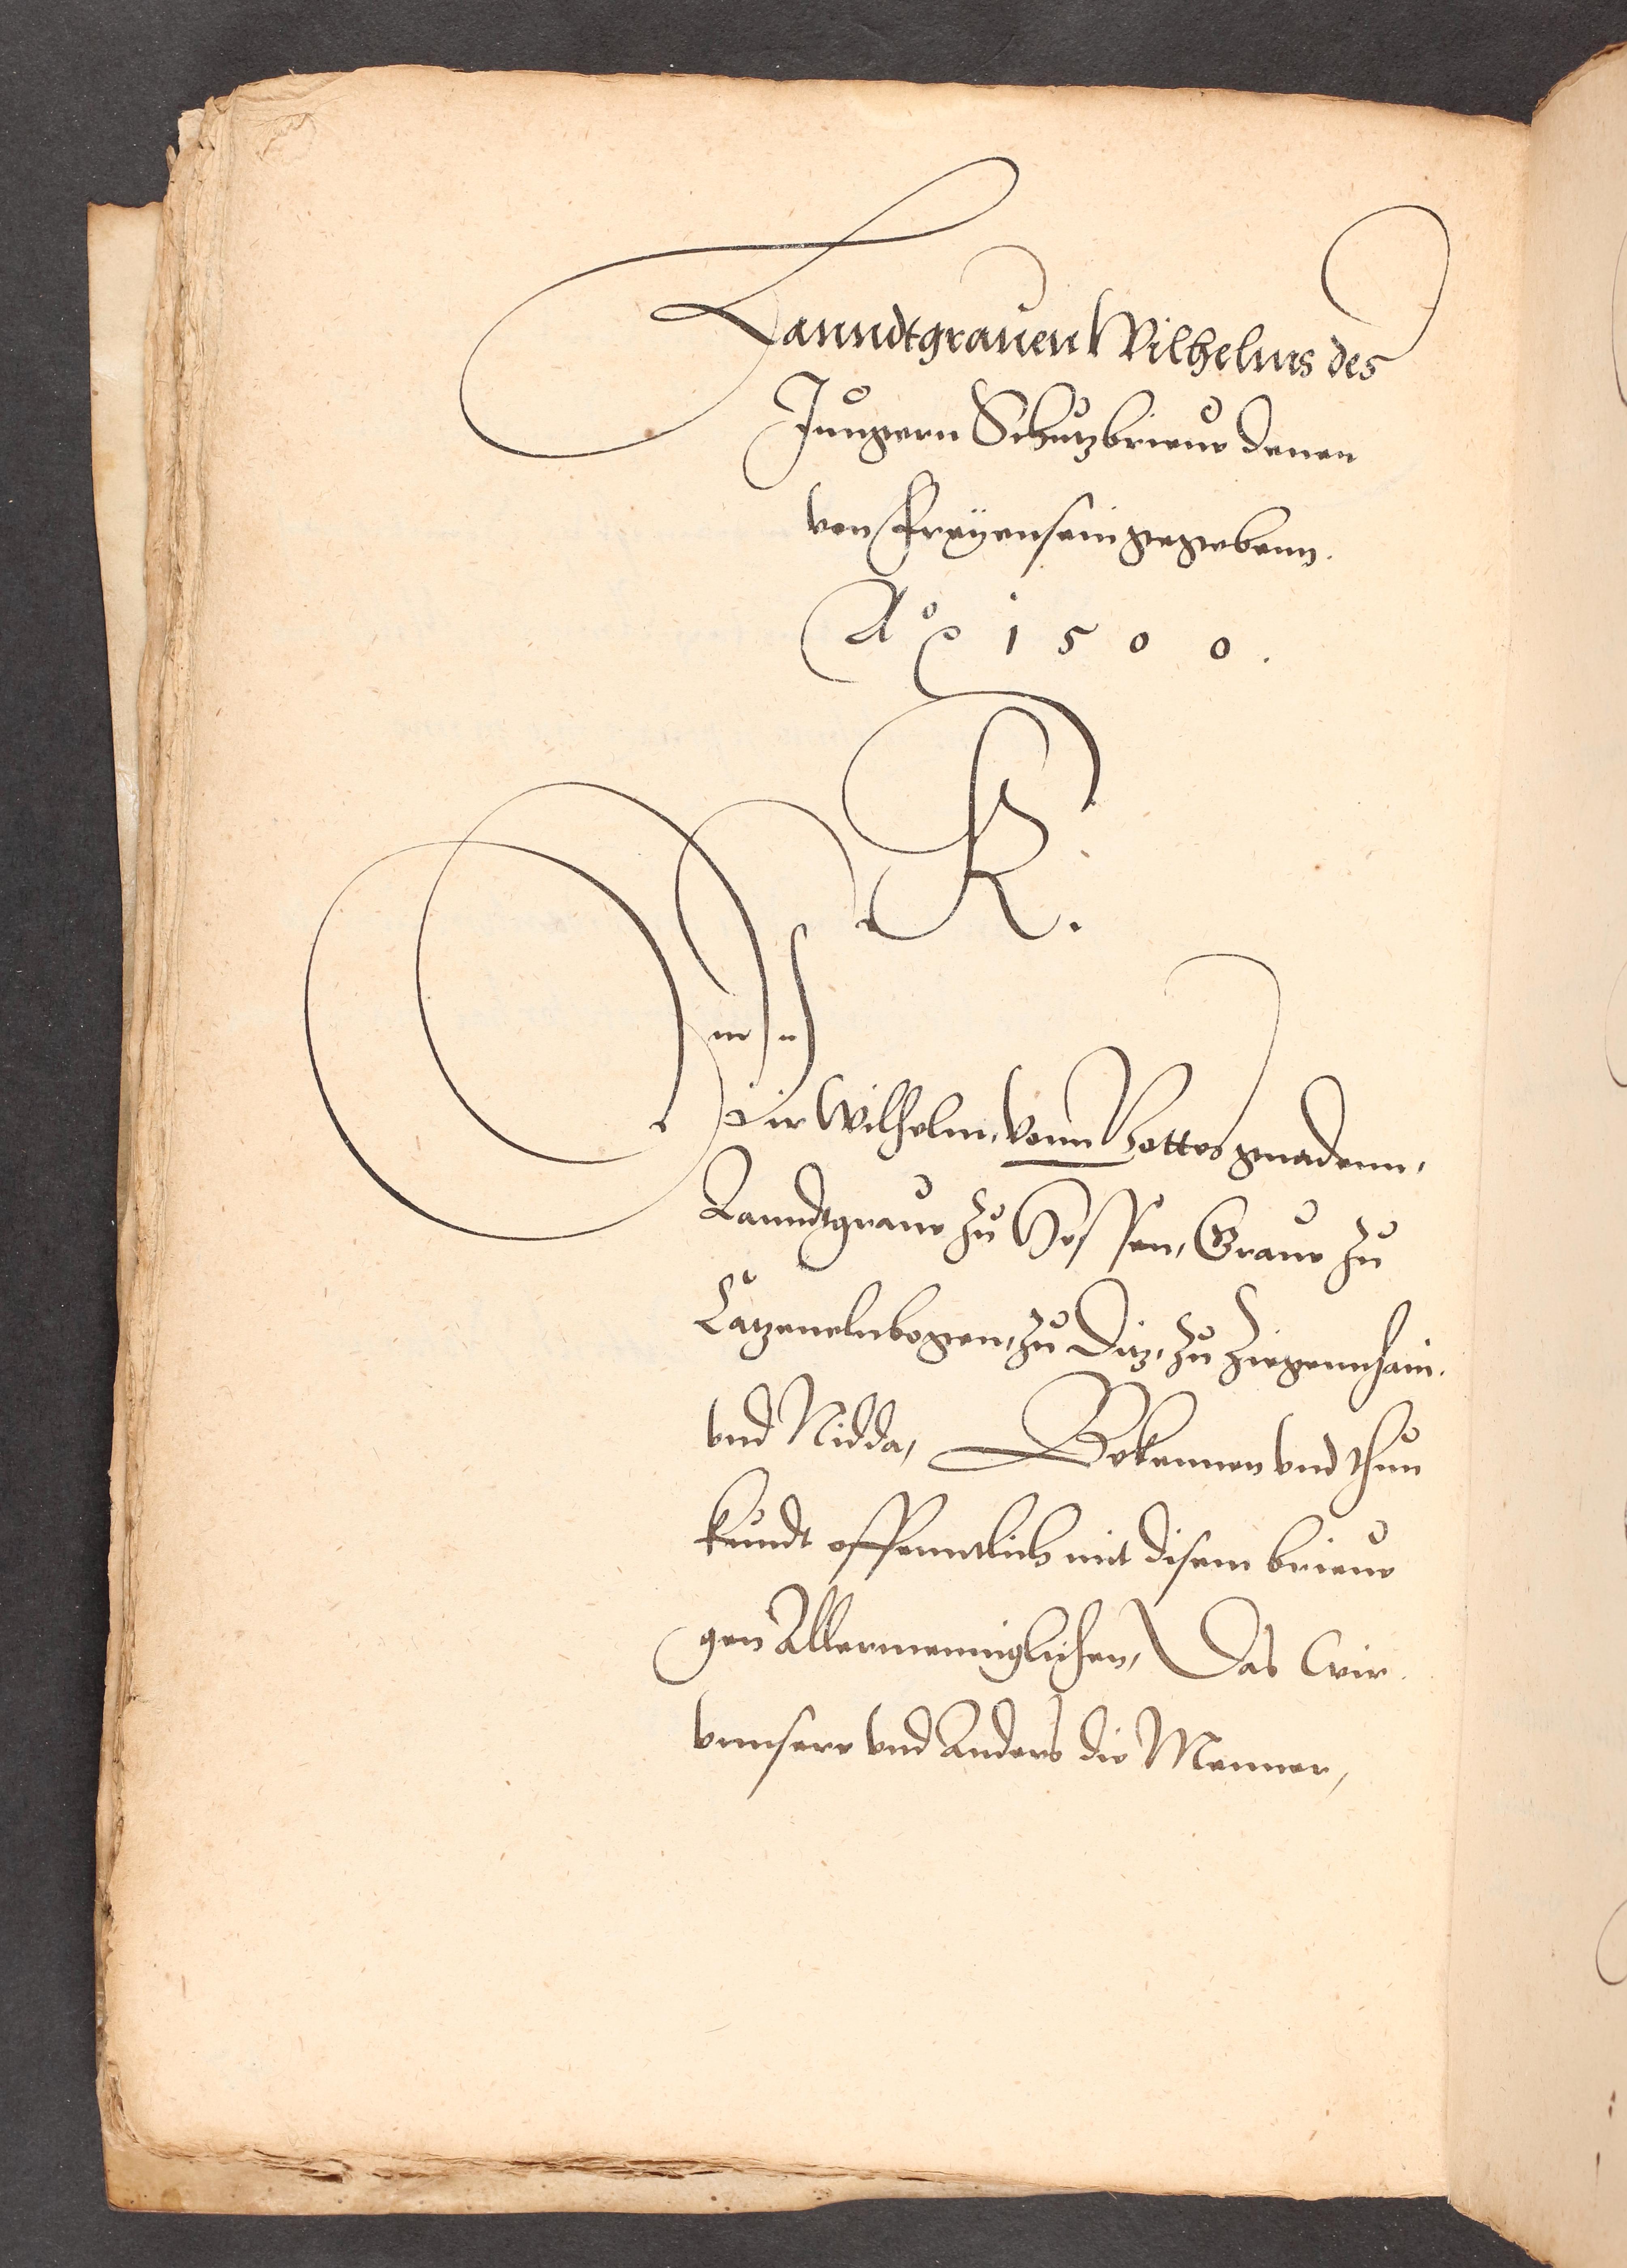 Lanndtgrauen Wilhelms des
Jungern Schutzbrieue denen
von Freyenseingegebenn.
Ao 1500.
K.
Wir Wilhelm, vonn Gottes gnadenn,
Lanndtgraue zu Hessen, Graue zu
Catzenelnbogen, zu Dietz, zu Ziegennhain.
vnd Nidda, Bekennen vnd thun
kundt offenntlich mit disem brieue
gen Allermenniglichen, Das wir
vnnsere vnd Anders die Menner,